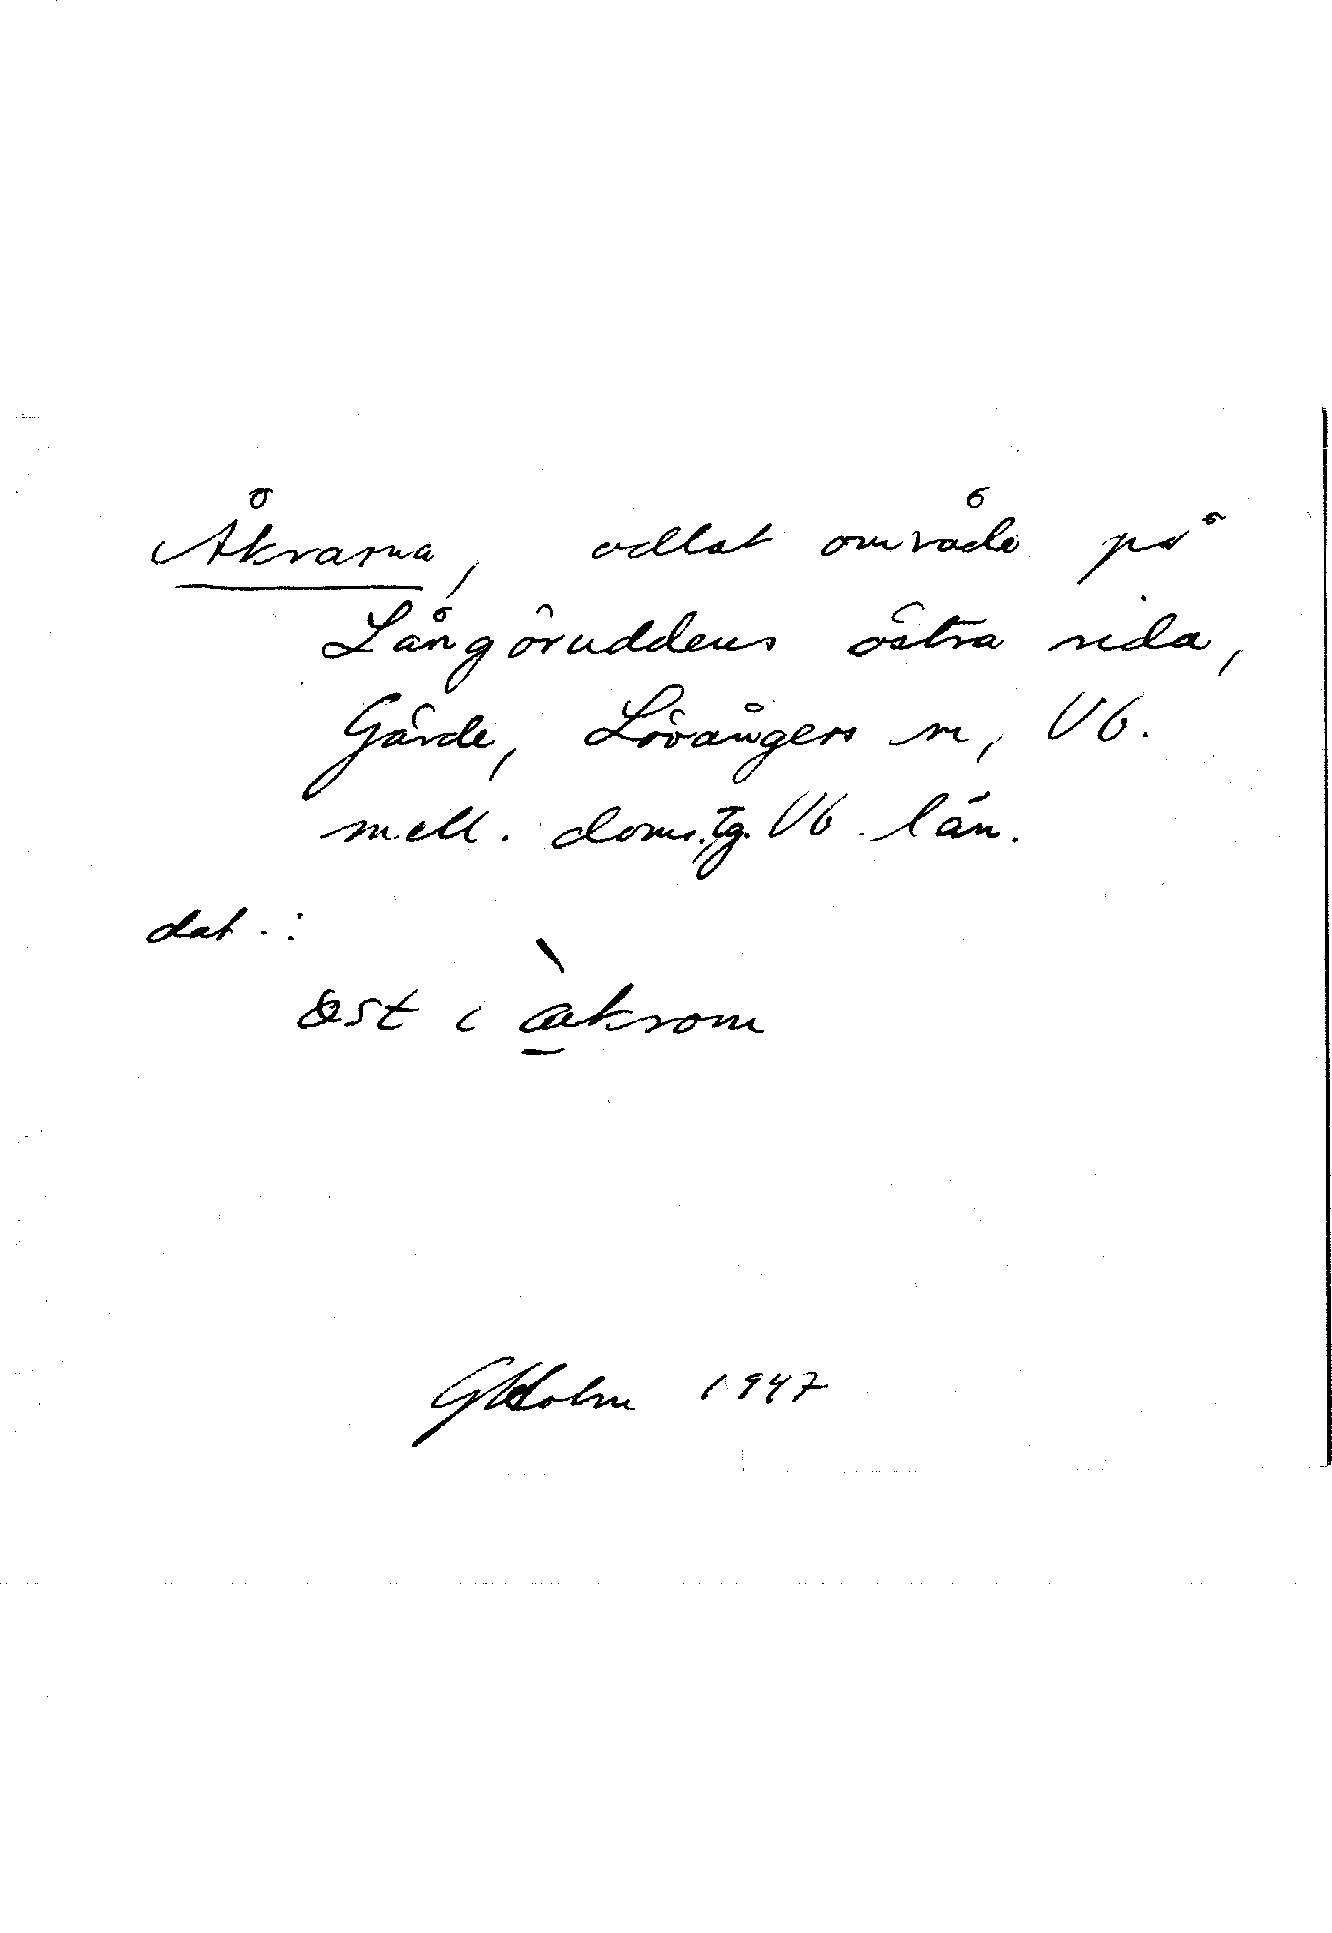 Åkrarna, odlat område på
Långöruddens östra sida,
Gärde, Lövångers sn, Vb.
mell. doms.tg. Vb. län.
dat.:
øst i åkrom
GHolm 1947